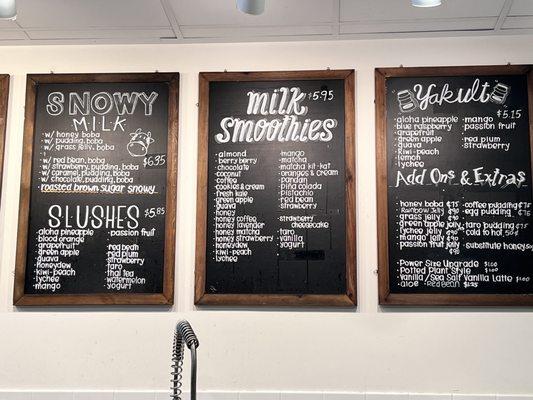 SNOWY
MILK
• w/ honey boba
• w/ pudding, boba
• w/ grass jelly, boba
• w/ red bean, boba
• w/ strawberry, pudding, boba
• w/ caramel, pudding, boba
• w/ chocolate, pudding, boba
$6.35
roasted brown sugar snowy
SLUSHES $5.85
• aloha pineapple
• blood orange
• grapefruit
• green apple
• guava
• honeydew
• kiwi-peach
• lychee
• mango
• passion fruit
• red bean
• red plum
• strawberry
• taro
• thai tea
• watermelon
• yogurt
milk $5.95
smoothies
• almond
• berry berry
• chocolate
• coconut
• coffee
• cookies & cream
• fresh kale
• green apple
• guava
• honey
• honey coffee
• honey lavender
• honey matcha
• honey strawberry
• honeydew
• kiwi-peach
• lychee
• mango
• matcha
• matcha kit-kat
• oranges & cream
• pandan
• piña colada
• pistachio
• red bean
• strawberry
• strawberry cheesecake
• taro
• vanilla
• yogurt
Yakult $5.15
• aloha pineapple
• blue raspberry
• grapefruit
• green apple
• guava
• kiwi-peach
• lemon
• lychee
• mango
• passion fruit
• red plum
• strawberry
Add Ons & Extras
• honey boba
• Rainbow jelly
• grass jelly
• green apple jelly
• lychee jelly
• mango jelly
• passion fruit jelly
• coffee pudding
• egg pudding
• taro pudding
• cold to hot
• substitute honey
• Power Size Upgrade $1.00
• Potted Plant Style $1.00
• Vanilla/Sea Salt Vanilla Latte $1.00
• aloe • Red Bean $1.25